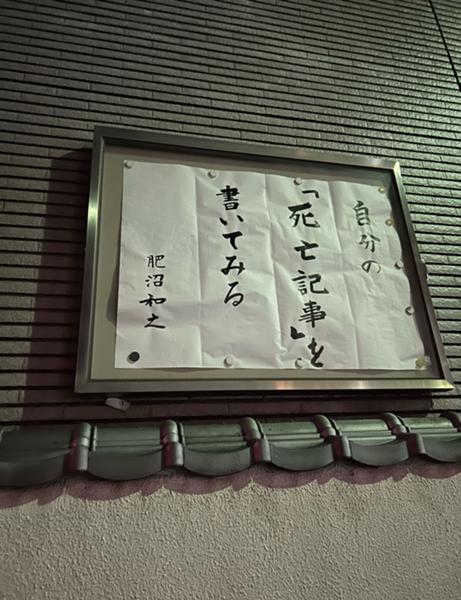 自分の
「死亡記事」を
書いてみる
肥沼和之